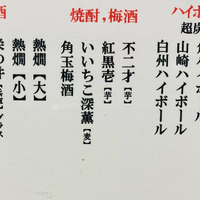 ハイボ
超炭
山崎ハイボール
白州ハイボール
焼酎,梅酒
不二才【芋】
紅黒壱【芋】
いいちこ深薫【麦】
角玉梅酒
酒
熱燗【大】
熱燗【小】